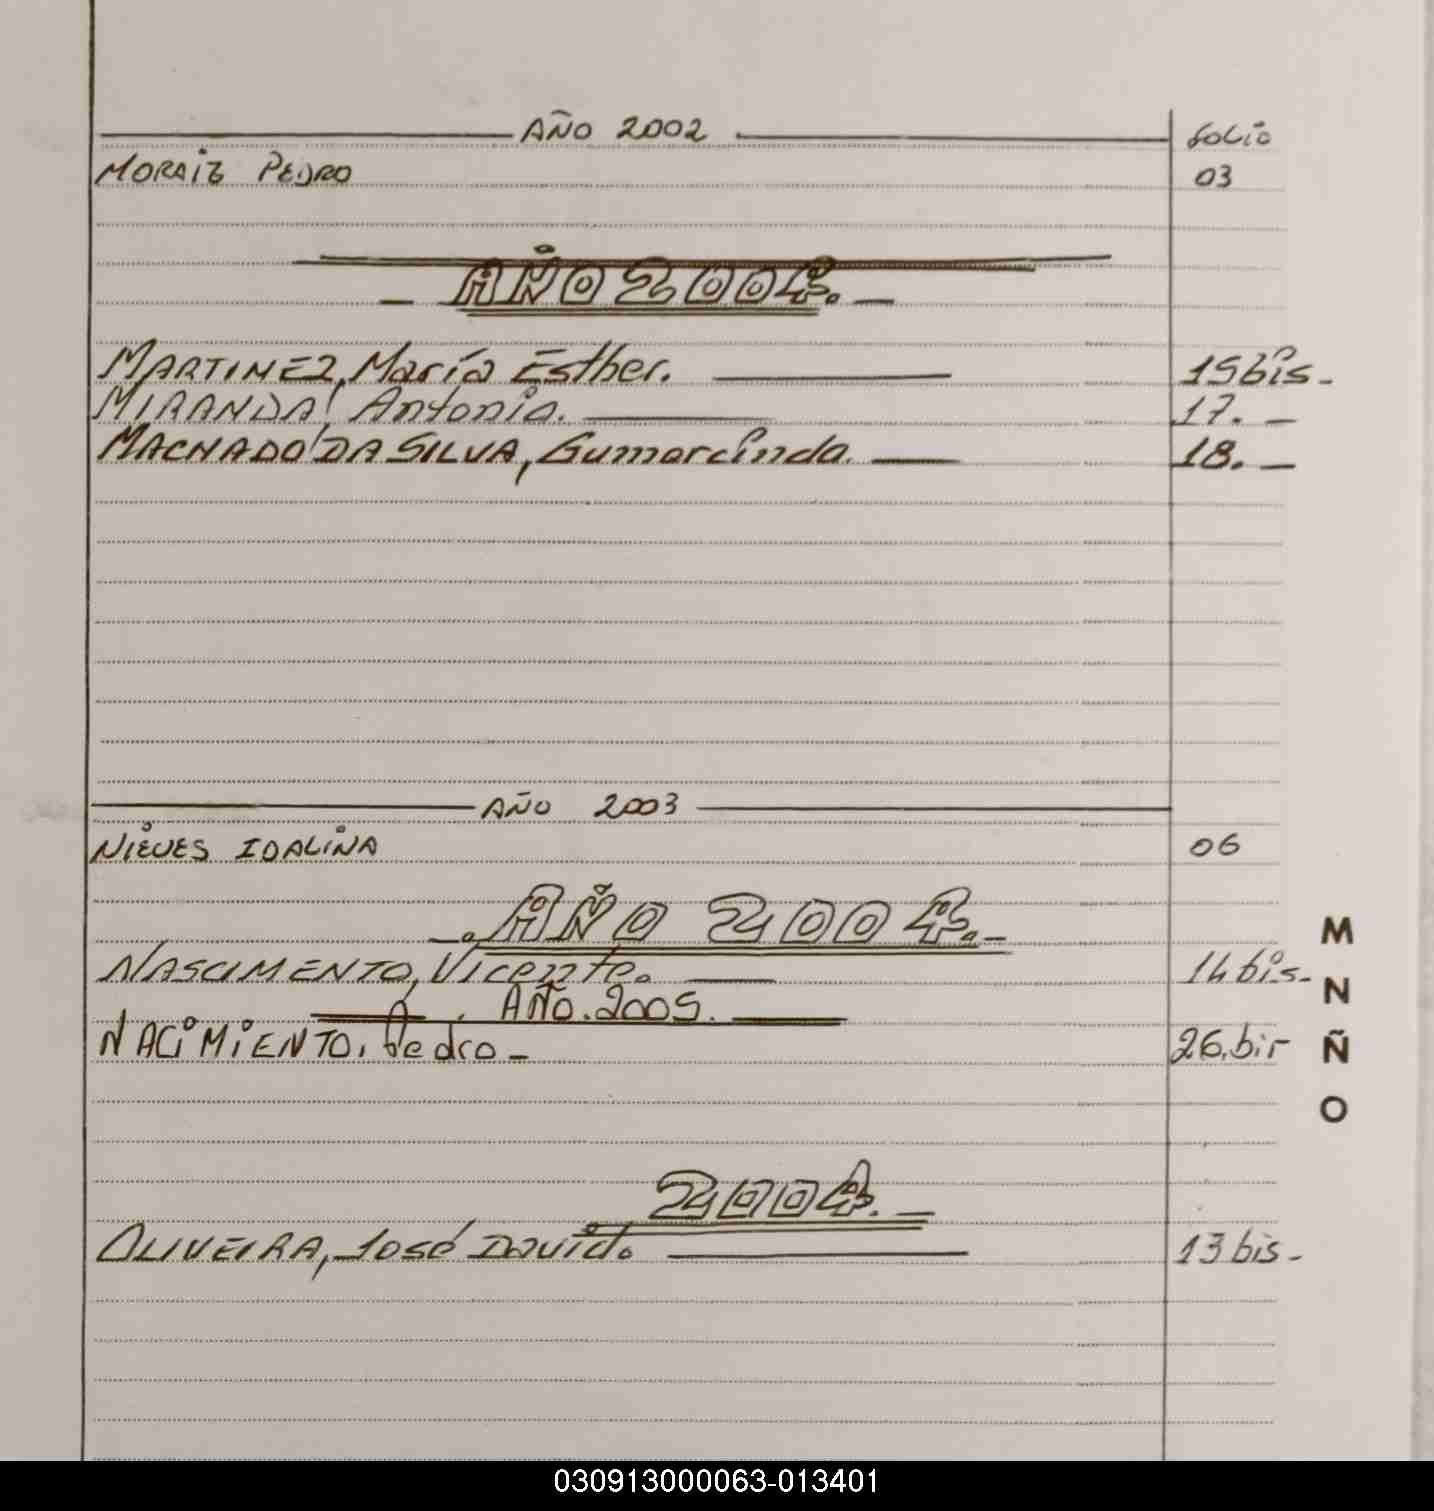 AÑO 2002 folio
MORAIZ PEDRO 03
AÑO 2004.
MARTINEZ, María Esther. 15 bis.
MIRANDA, Antonio. 17.
MACHADO DA SILVA, Gumarcinda. 18.
AÑO 2003
NIEVES IDALINA 06
AÑO 2004.
NASCIMENTO, Vicente. 14 bis.
AÑO. 2005.
NACIMIENTO, Pedro 26. bis
2004.
OLIVEIRA, José David. 13 bis
M
N
Ñ
O
030913000063-013401